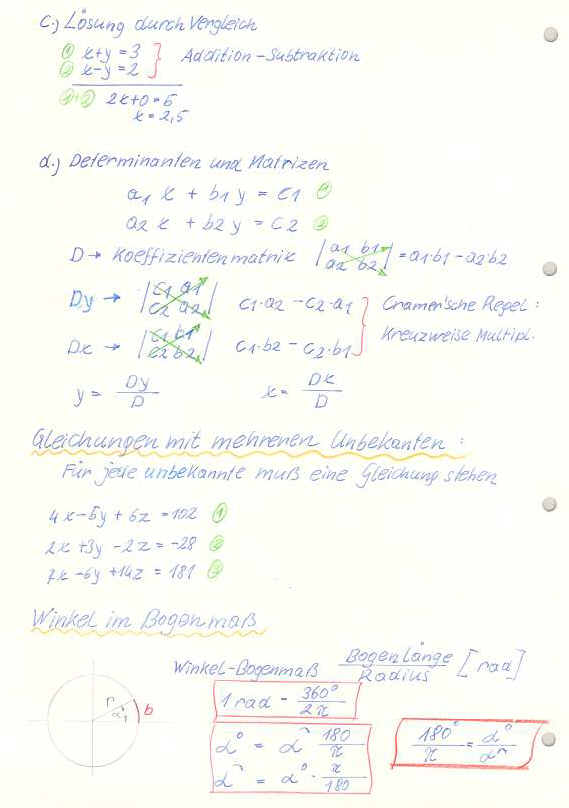 c.) Lösung durch Vergleich
① x+y = 3
② x-y = 2 } Addition-Subtraktion
①+② 2x+0 = 5
x = 2,5
d.) Determinanten und Matrizen
a1 x + b1 y = c1 ①
a2 x + b2 y = c2 ②
D → Koeffizientenmatrix |a1 b1 a2 b2| = a1·b1 - a2·b2
Dy → |c1 a1 c2 a2| c1·a2 - c2·a1 Cramer'sche Regel:
Dx → |c1 b1 c2 b2| c1·b2 - c2·b1 Kreuzweise Multipl.
y = Dy/D x = Dx/D
Gleichungen mit mehreren Unbekannten:
Für jede unbekannte muß eine Gleichung stehen
4x-5y + 6z = 102 ①
2x +3y -2z = -28 ②
7x -6y +14z = 181 ③
Winkel im Bogenmaß
Winkel-Bogenmaß Bogenlänge/Radius [rad]
1 rad = 360°/2π
α° = α^ 180/π
α^ = α° · π/180
180°/π = α°/α^
r
α°
b